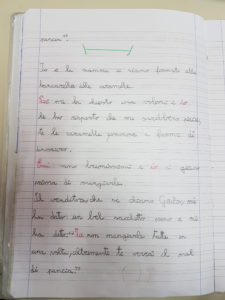 pancia".
Io e la mamma ci siamo fermati alla
bancarella delle caramelle.
Lei me ha chiesto una volevi e io
le ho risposto che mi sarebbero piaciute
le caramelle gommose a forma di
Lei sono buonissime e io ci gioco
prima di mangiarle.
Il venditore, che si chiama Gastone, mi
ha dato un bel sacchetto pieno e mi
ha detto: "Tu non mangiarle tutte in
una volta, altrimenti te verrà il mal
di pancia."